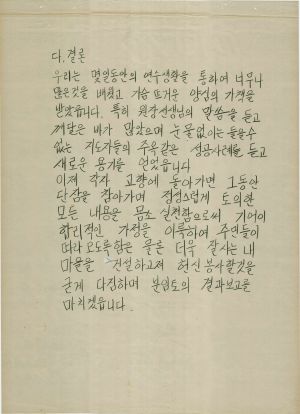 다. 결론
우리는 몇일동안의 연수생활을 통하여 너무나
많은것을 배웠고 가슴 뜨거운 양심의 가책을
받았읍니다. 특히 원장선생님의 말씀을 듣고
깨달은 바가 많았으며 눈물없이는 들을수
없는 지도자들의 주옥같은 성공사례를 듣고
새로운 용기를 얻었읍니다
이제 각자 고향에 돌아가면 그동안
단점을 찾아가며 정성스럽게 토의한
모든 내용을 몸소 실천함으로써 기어이
합리적인 가정을 이룩하여 주민들이
따라오도록함은 물론 더욱 잘사는 내
마을을 건설하고져 헌신봉사할것을
굳게 다짐하며 분임토의 결과보고를
마치겠읍니다.